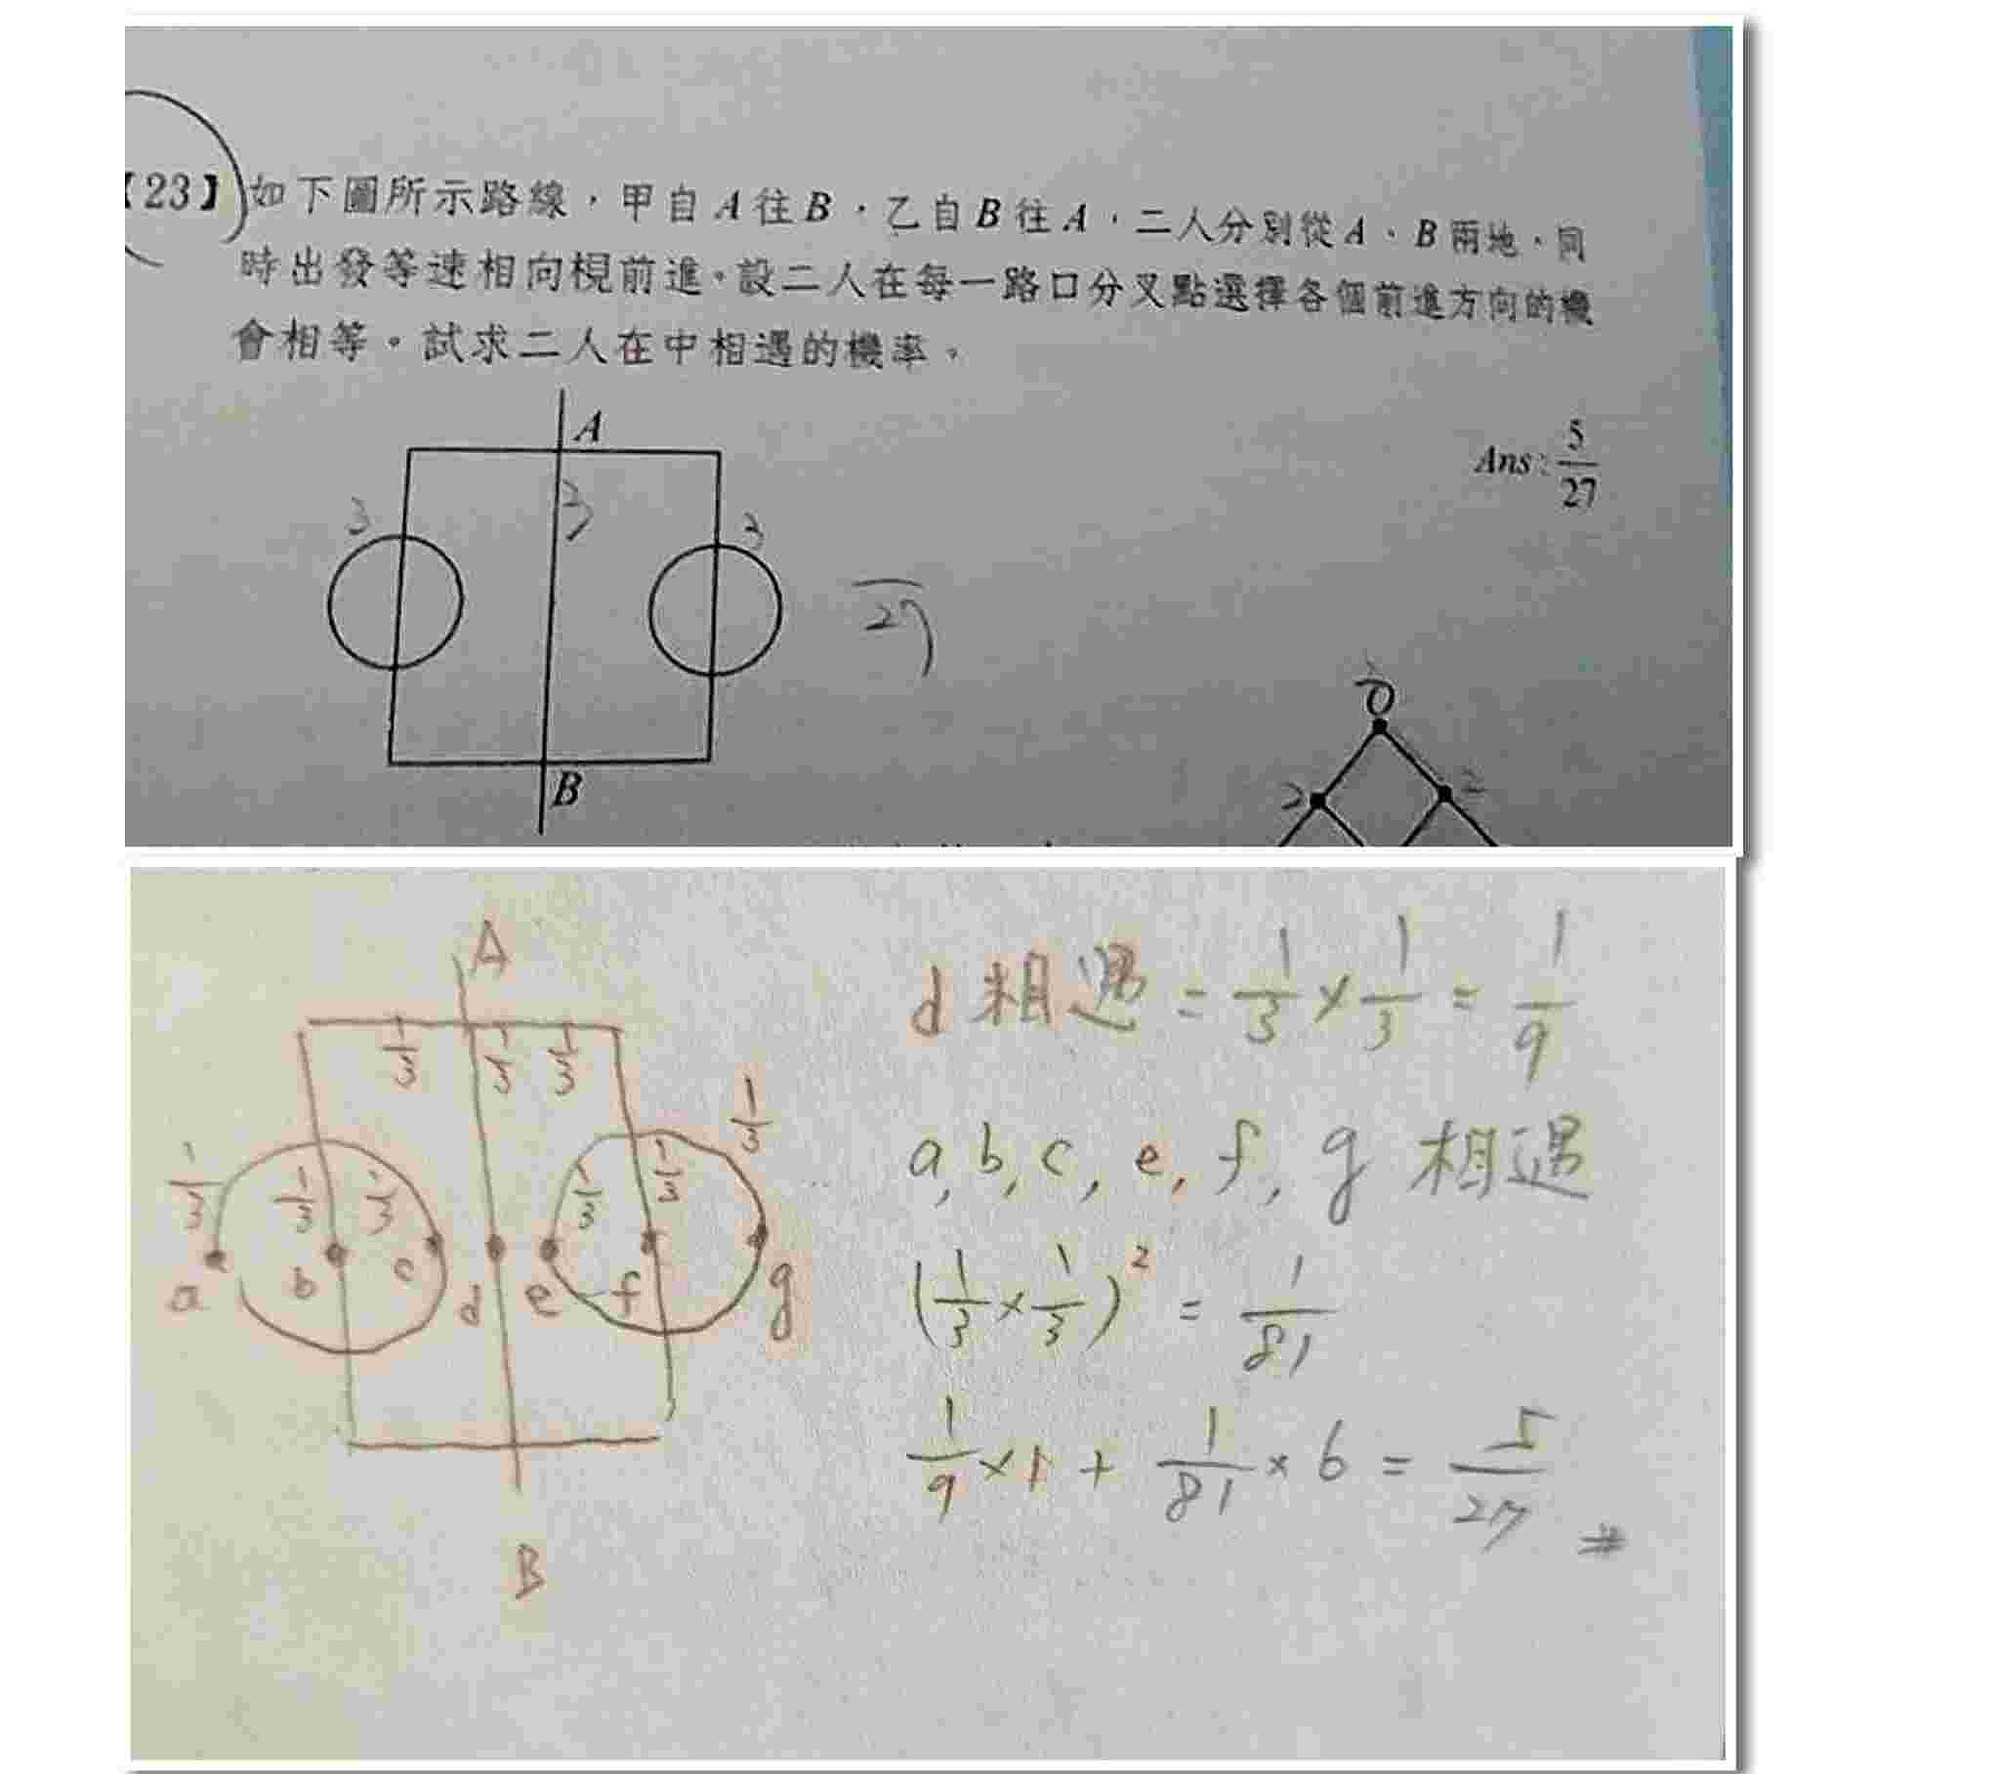 【23】如下圖所示路線，甲自A往B，乙自B往A，二人分別從A、B兩地，同
時出發等速相向視前進。設二人在每一路口分叉點選擇各個前進方向的機
會相等。試求二人在中相遇的機率。
A
Ans: 5/27
3
3
3
27
B
0
2
2
A
d 相遇 = 1/3 × 1/3 = 1/9
1/3 1/3 1/3
1/3
a, b, c, e, f, g 相遇
1/3 1/3 1/3 1/3 1/3
(1/3 × 1/3)² = 1/81
a b c d e f g
1/9 × 1 + 1/81 × 6 = 5/27 #
B